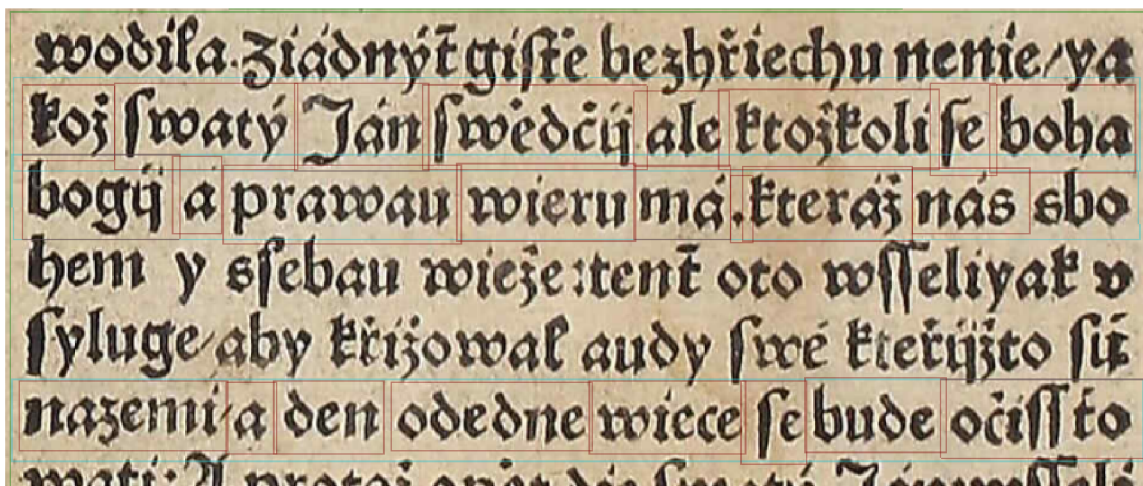 wodila. Ziádnýť giſťe bez hřiechu nenie / ya
kož ſwatý Ján ſwědčij ale ktožkoli ſe boha
bogij á prawau wieru má. kteráž nás sbo
hem y sſebau wieže : tenť oto wſſeliyak v
ſyluge / aby křižowal audy ſwé kteřijžto ſú
na zemi / a den odedne wiece ſe bude očiſſťo